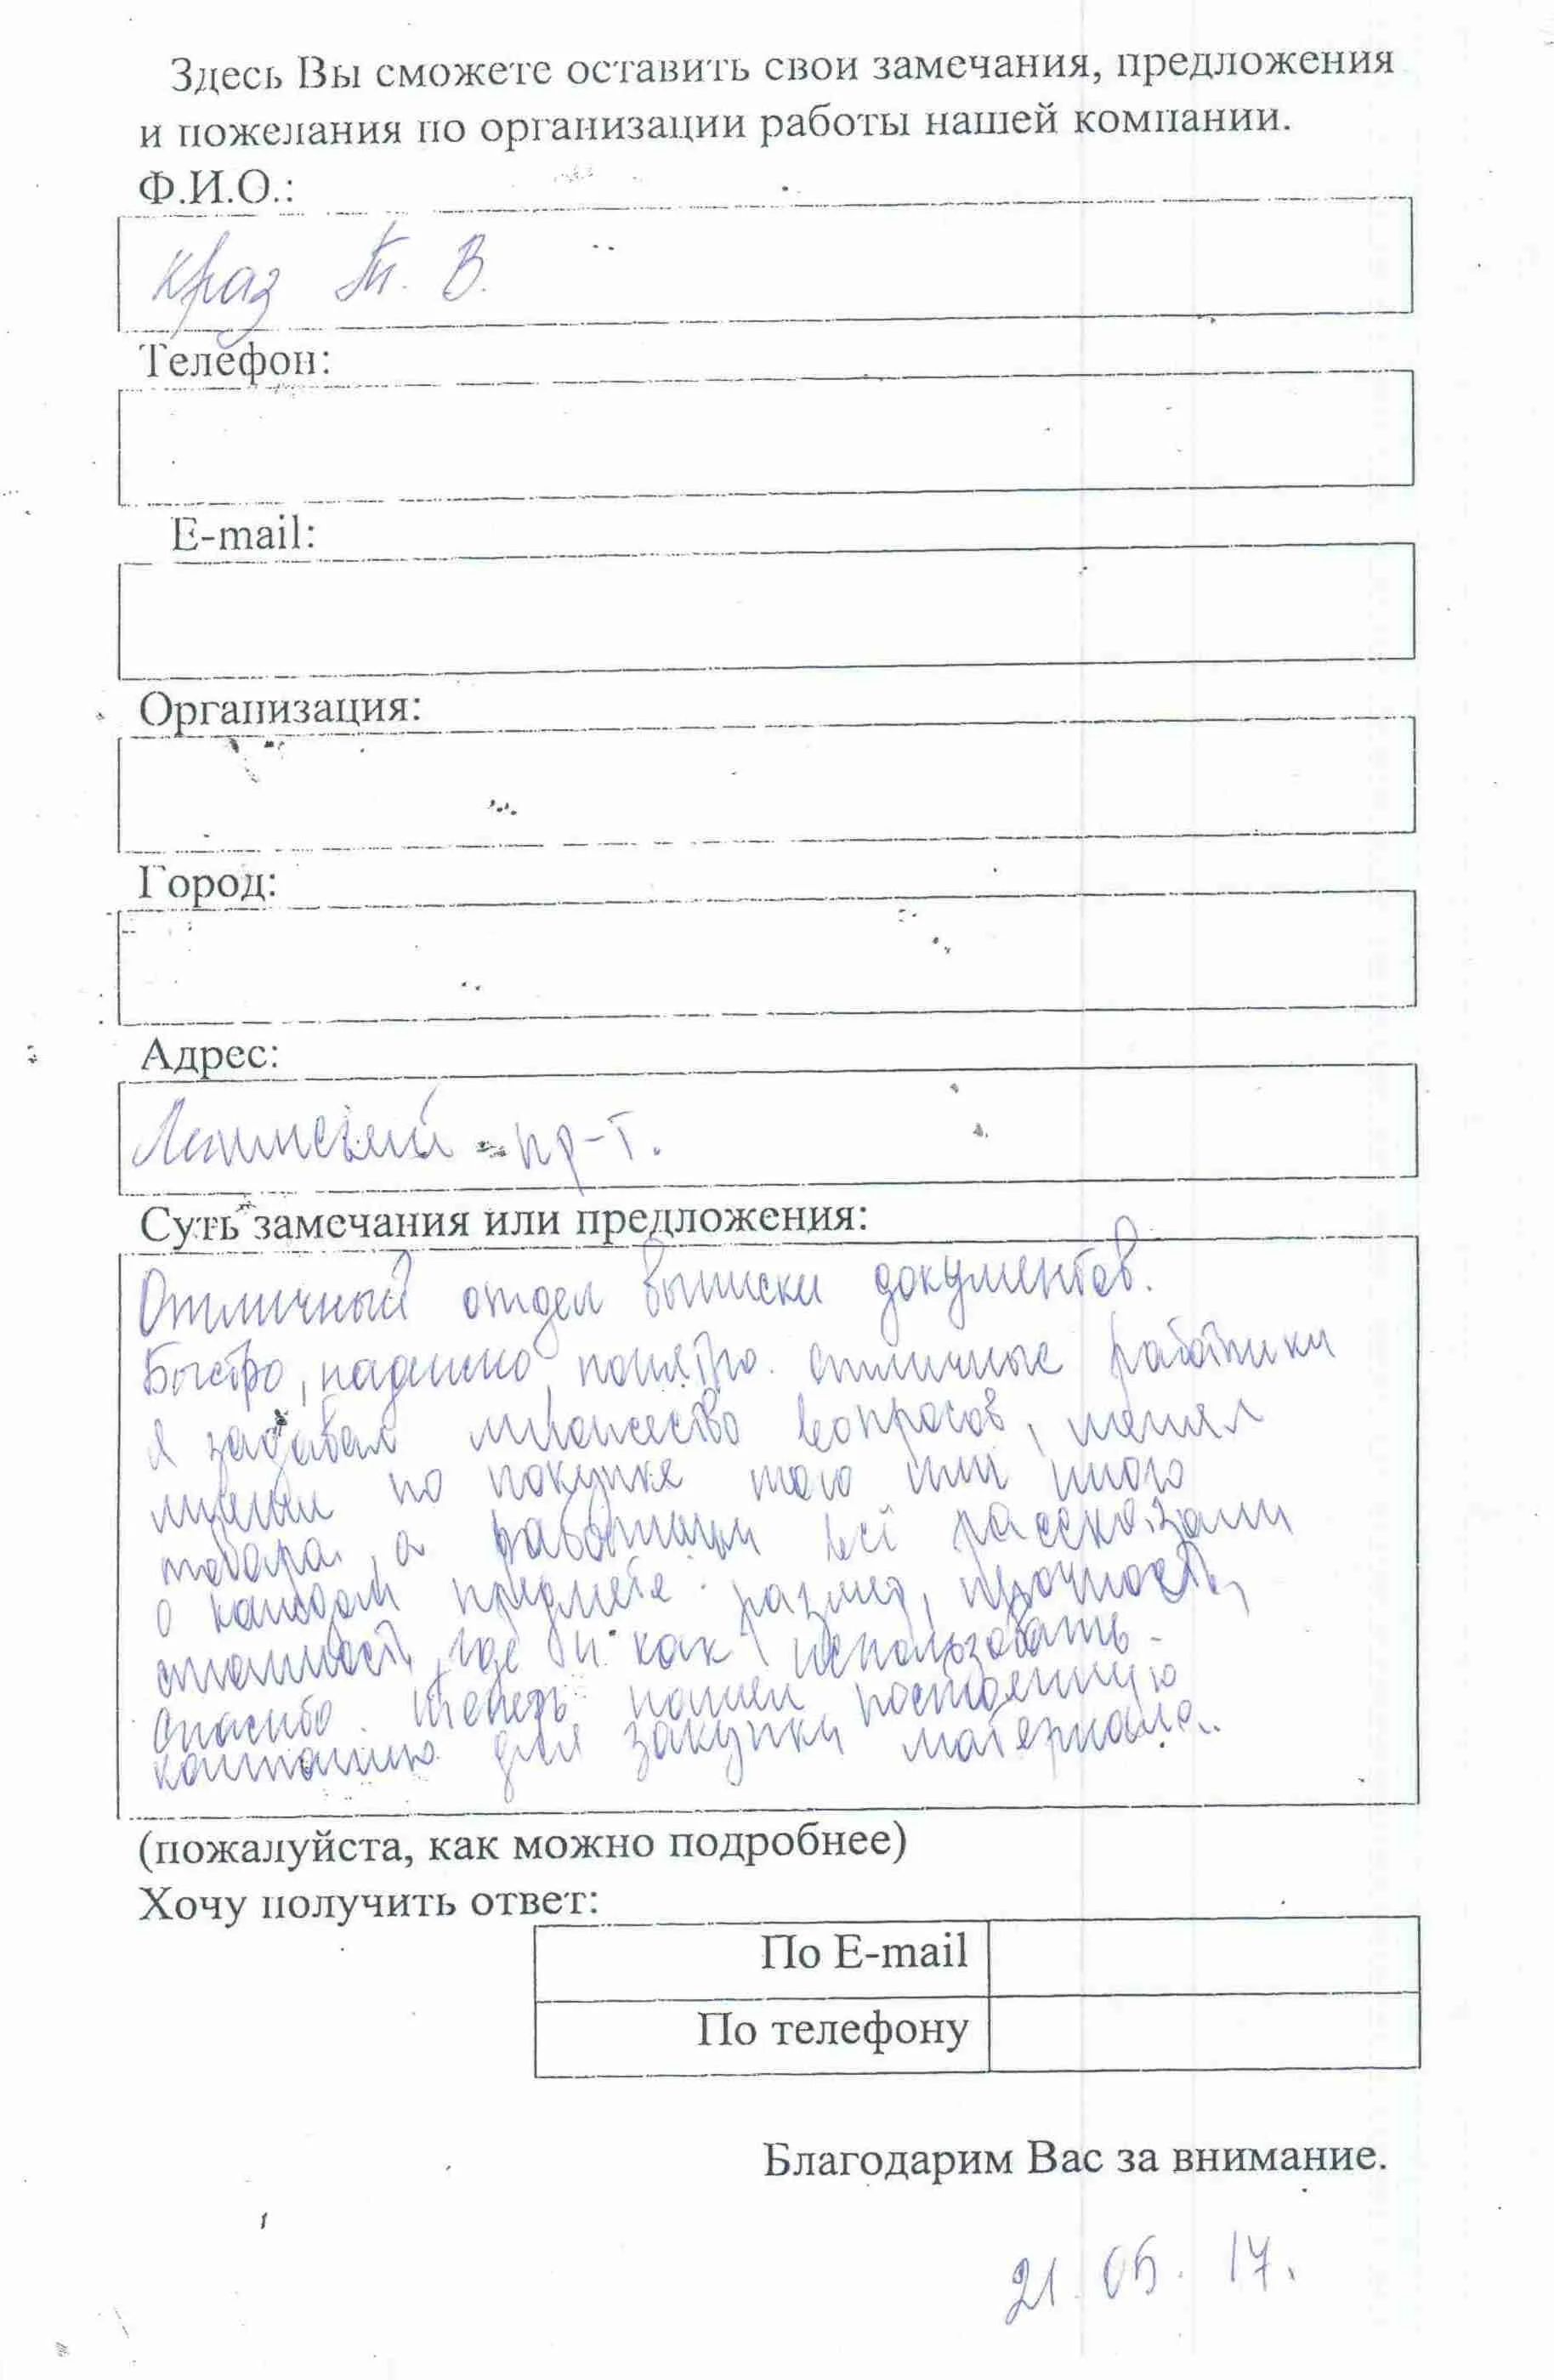 Здесь Вы сможете оставить свои замечания, предложения
и пожелания по организации работы нашей компании.
Ф.И.О.:
Краз Т. В.
Телефон:
E-mail:
Организация:
Город:
Адрес:
Ленинский пр-т.
Суть замечания или предложения:
Отличный отдел выписки документов.
Быстро, надежно, понятно. Отличные работники
Я задавал множество вопросов, менял
мнения по покупке того или иного
товара, а работники всё рассказали
о каждом предмете: размер, прочность,
стоимость, где и как использовать.
Спасибо. Теперь нашел постоянную
компанию для закупки материала.
(пожалуйста, как можно подробнее)
Хочу получить ответ:
По E-mail
По телефону
Благодарим Вас за внимание.
21.05.17.